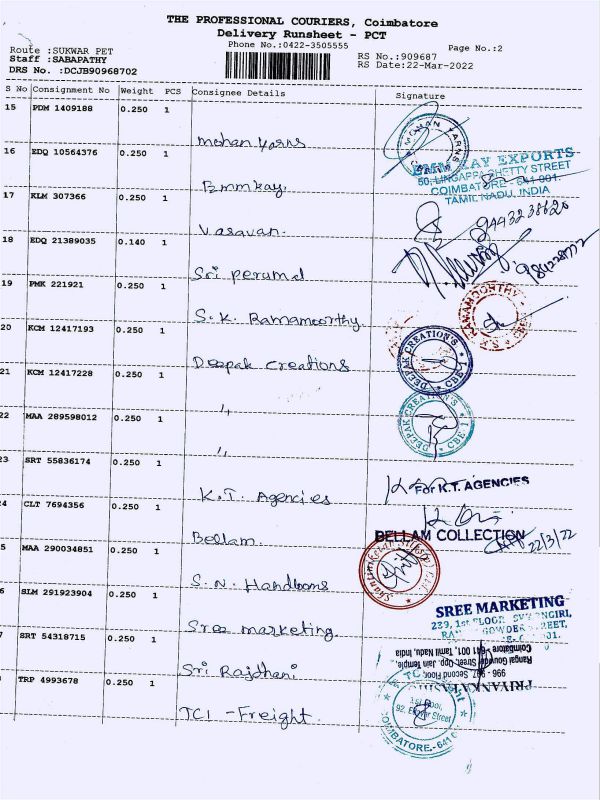 THE PROFESSIONAL COURIERS, Coimbatore
Delivery Runsheet - PCT
Phone No.:0422-3505555
Page No.:2
Route :SUKWAR PET
Staff :SABAPATHY
DRS No. :DCJB90968702
RS No.:909687
RS Date:22-Mar-2022
S No Consignment No Weight PCS Consignee Details Signature
15 PDM 1409188 0.250 1
Mohan Yarns
MOHAN YARNS
16 EDQ 10564376 0.250 1
Emmkay.
EMM KAY EXPORTS
50, LINGAPPA CHETTY STREET
COIMBATORE - 641 001.
TAMIL NADU, INDIA
17 KLM 307366 0.250 1
Vasavan.
18 EDQ 21389035 0.140 1
Sri Perumal
19 PMK 221921 0.250 1
S.K. Ramamoorthy
20 KCM 12417193 0.250 1
Deepak Creations
DEEPAK CREATION'S
CBE 1
21 KCM 12417228 0.250 1
"
DEEPAK CREATION'S
CBE 1
22 MAA 289598012 0.250 1
"
23 SRT 55836174 0.250 1
K.T. Agencies
For K.T. AGENCIES
4 CLT 7694356 0.250 1
Bellam
BELLAM COLLECTION
22/3/22
5 MAA 290034851 0.250 1
S.N. Handlooms
6 SLM 291923904 0.250 1
Sree Marketing.
SREE MARKETING
239, 1st FLOOR
7 SRT 54318715 0.250 1
Sri Rajdhani
PRIYANKA
996 - 997, Second Floor,
Rangai Gowder Street, Opp. Jain Temple,
Coimbatore - 641 001, Tamil Nadu, India
TRP 4993678 0.250 1
TCI - Freight.
1st Floor,
COIMBATORE.-641 0